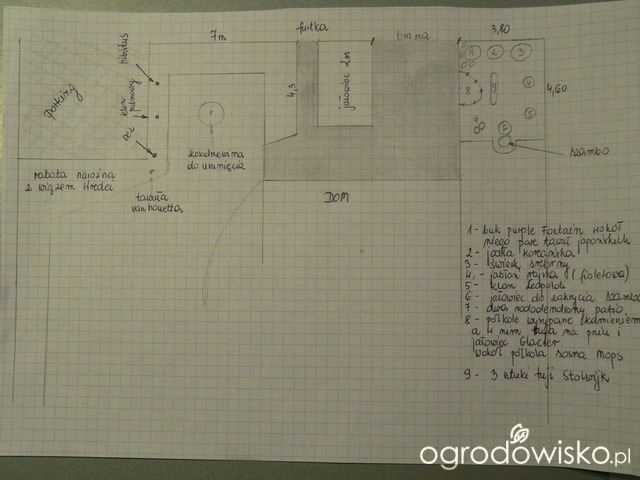 furtka
7m
brama
3,80
hibiskus
klon palmowy
parking
bez
4,3
jałowiec 2m
1
2
3
8
9
4
5
7
6
4,60
kosodrzewina
do usunięcia
szambo
rabata narożna
z wiązem Hredei
tawuła
van houetta
DOM
1 - buk purple Fontain wokół
niego parę tawuł japońskich
2 - jodła koreańska
3 - świerk srebrny
4, - jabłoń rajska (fioletowa)
5 - klon Leopoldi
6 - jałowiec do zakrycia szamba
7 - dwa rododendrony patio
8 - półkole wysypane kamieniem
a w nim tuja na pniu i
jałowiec Glacier
wokół półkola sosna mops
9 - 3 sztuki tuji Stolwijk
ogrodowisko.pl